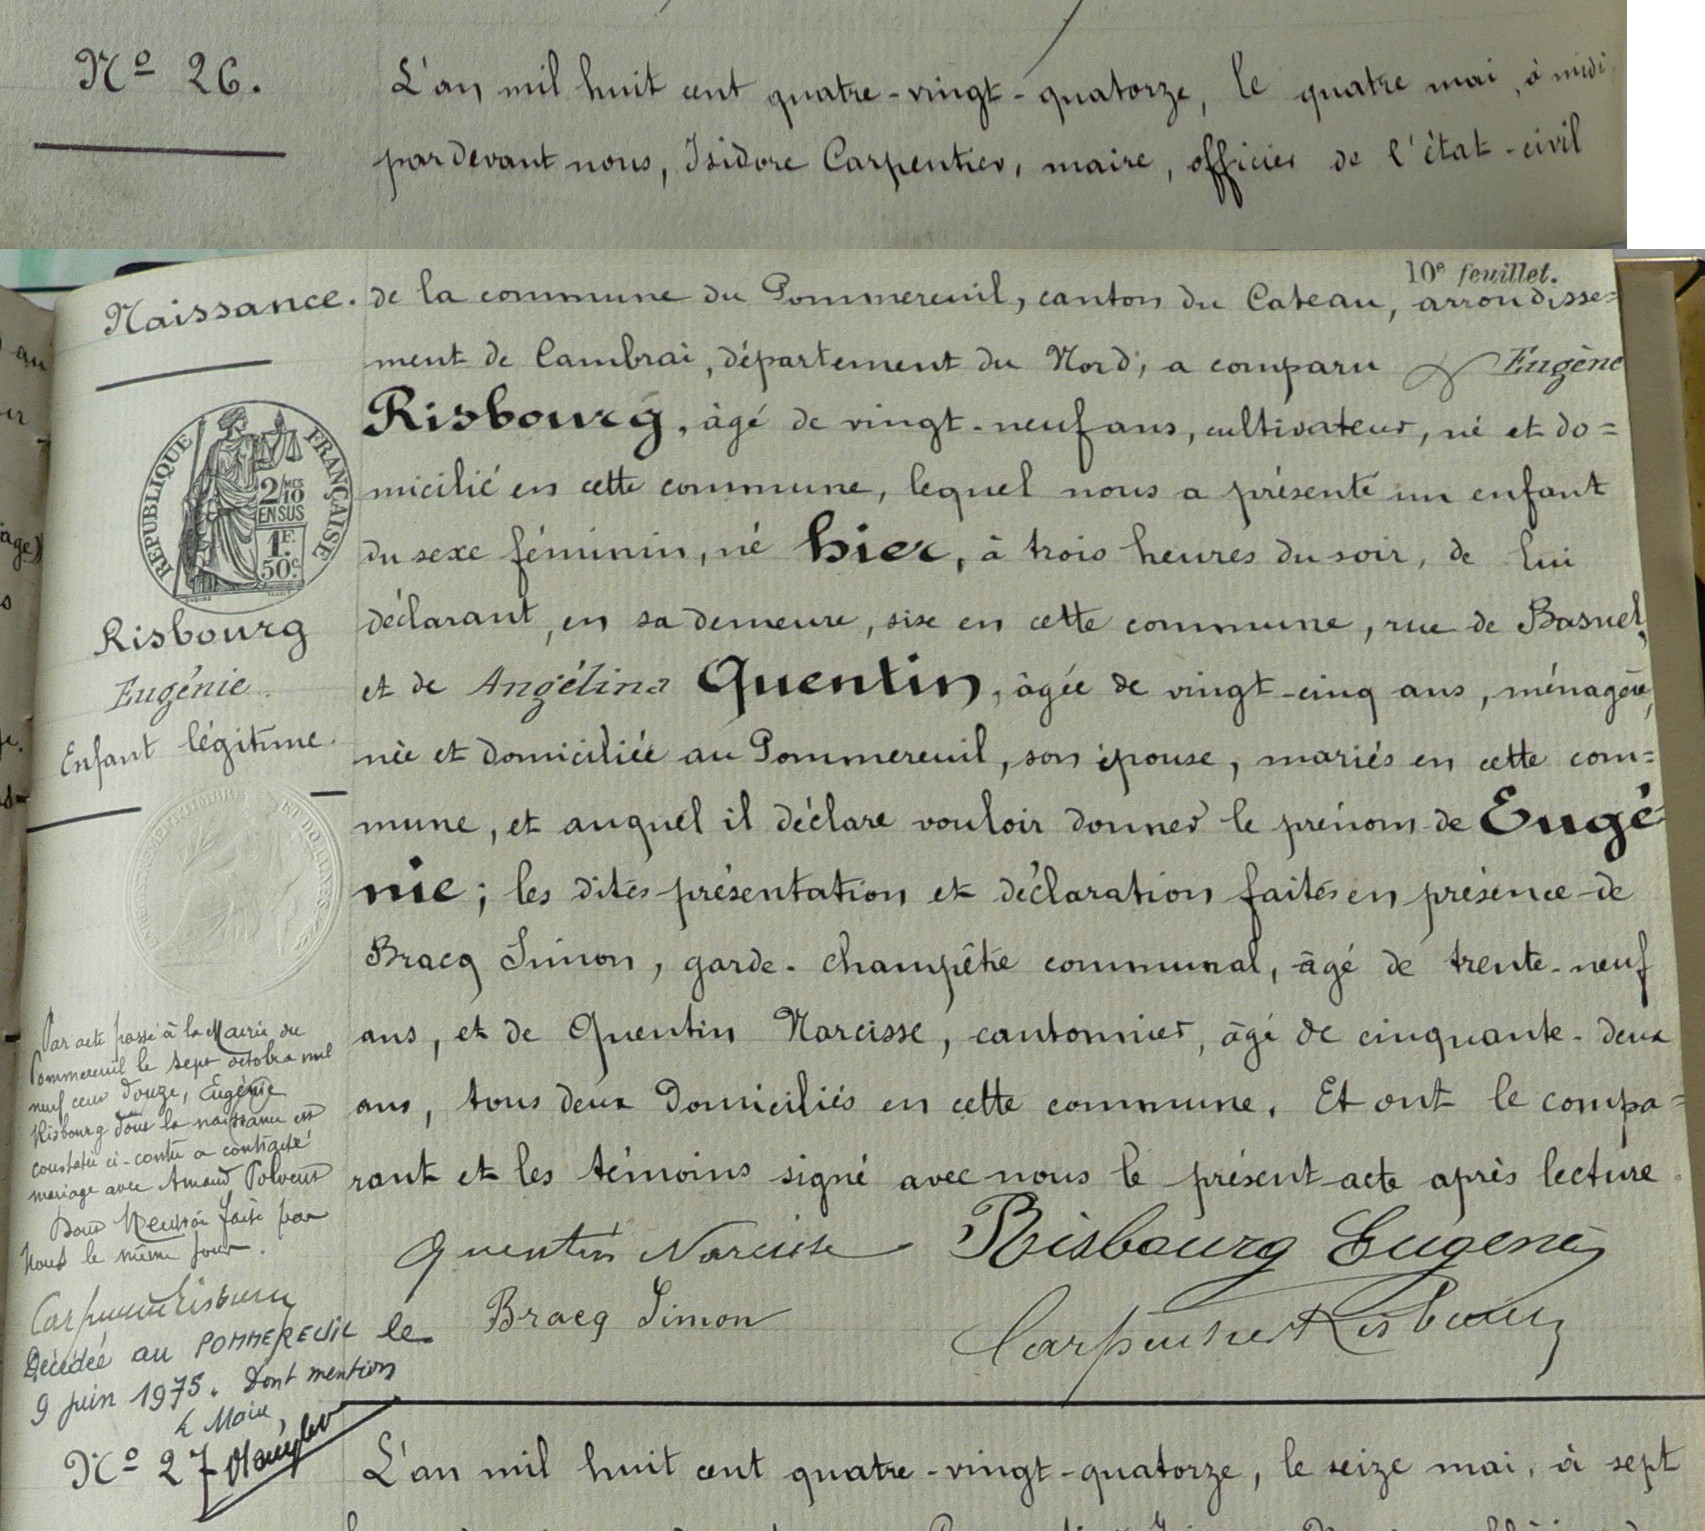 Nº 26.
L'an mil huit cent quatre-vingt-quatorze, le quatre mai, à midi
pardevant nous, Isidore Carpentier, maire, officier de l'état-civil
10e feuillet.
Naissance.
de la commune du Pommereuil, canton du Cateau, arrondisse=
ment de Cambrai, département du Nord, a comparu Eugène
Risbourg, âgé de vingt-neuf ans, cultivateur, né et do=
micilié en cette commune, lequel nous a présenté un enfant
du sexe féminin, né hier, à trois heures du soir, de lui
déclarant, en sa demeure, sise en cette commune, rue de Basuel,
et de Angélina Quentin, âgée de vingt-cinq ans, ménagère,
née et domiciliée au Pommereuil, son épouse, mariés en cette com=
mune, et auquel il déclare vouloir donner le prénom de Eugé=
nie; les dites présentation et déclaration faites en présence de
Bracq Simon, garde-champêtre communal, âgé de trente-neuf
ans, et de Quentin Narcisse, cantonnier, âgé de cinquante-deux
ans, tous deux domiciliés en cette commune. Et ont le compa=
rant et les témoins signé avec nous le présent acte après lecture.
Quentin Narcisse Risbourg Eugène
Bracq Simon Carpentier Risbourg
REPUBLIQUE FRANÇAISE
2/10 MES
EN SUS
1F
50c
Risbourg
Eugénie.
Enfant légitime.
Par acte passé à la Mairie du
Pommereuil le sept octobre mil
neuf cent douze, Eugénie
Risbourg dont la naissance est
constatée ci-contre a contracté
mariage avec Amand Polvent
Dont Mention faite par
Nous le même jour.
Carpentier Risbourg
Décédée au POMMEREUIL le
9 juin 1975. Dont mention
Le Maire,
Nº 27
L'an mil huit cent quatre-vingt-quatorze, le seize mai, à sept